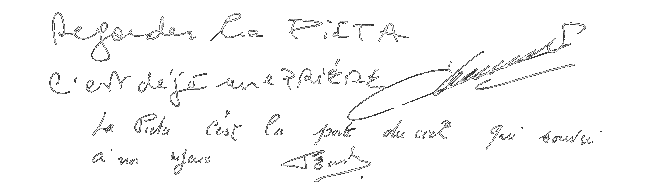 Regarder la PiETA
C'est déjà une PRIÈRE
La Pieta c'est la porte du ciel qui
à